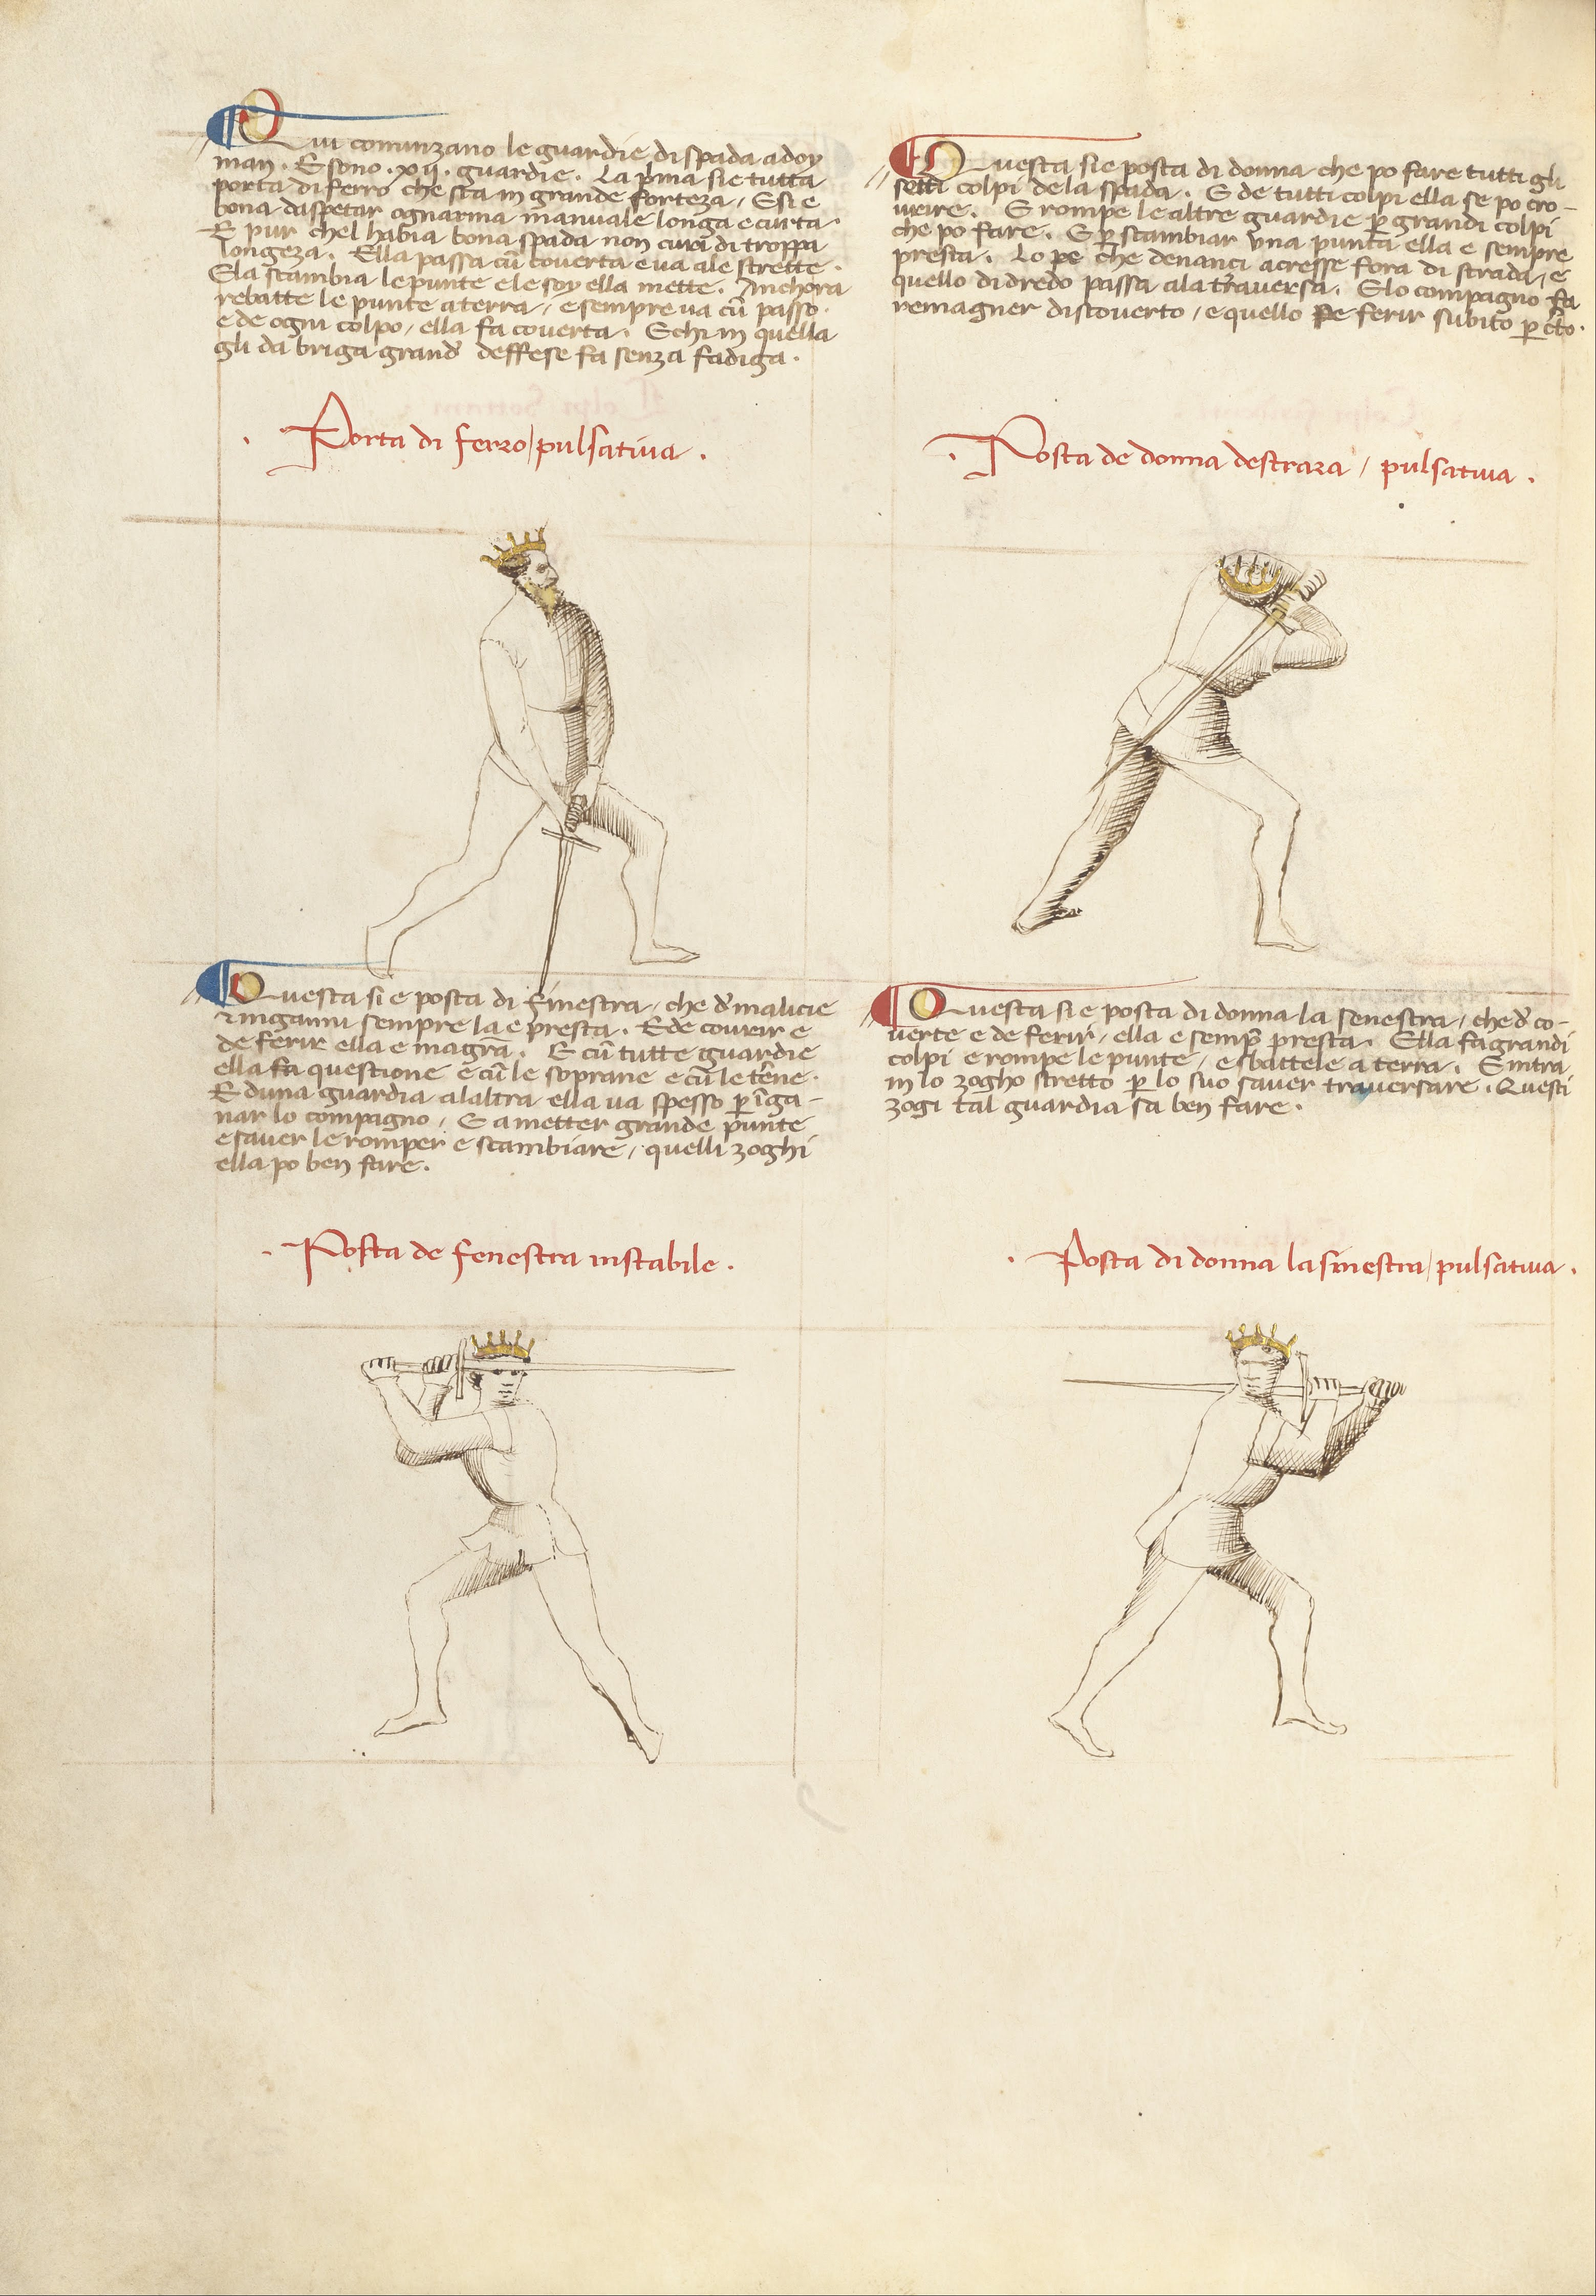 Qui cominzano le guardie di spada a doy
man. E sono .xij. guardie. La pma sie tutta
porta di ferro che sta in grande forteza / E si e
bona daspetar ognarma manuale longa e curta.
E pur chel habia bona spada non cura di troppa
longeza. Ella passa cū coverta e va ale strette.
Ela scambia le punte e le soy ella mette. Anchora
rebatte le punte a terra / e sempre va cū passo.
e de ogni colpo / ella fa coverta. E chi in quella
gli da briga grand deffese fa senza fadiga.
. Porta di ferro / pulsativa .
Questa sie posta di donna che po fare tutti gli
setti colpi de la spada. E de tutti colpi ella se po cro-
vrire. E rompe le altre guardie p grandi colpi
che po fare. E p scambiar una punta ella e sempre
presta. Lo pe che denanci acresse fora di strada / e
quello didredo passa ala traversa. E lo compagno fa
remagner discoverto / e quello pe ferir subito p cto.
. Posta de donna destraza / pulsativa .
Questa si e posta di finestra / che d malicie
⁊ inganni sempre la e presta. E de covrir e
de ferir ella e magrā. E cū tutte guardie
ella fa questione e cū le soprane e cū le tēne.
E duna guardia a laltra ella va spesso p īga-
nar lo compagno / E a metter grande punte
e saver le romper e scambiare / quelli zoghi
ella po ben fare.
. Posta de fenestra instabile .
Questa si e posta di donna la senestra / che d co-
verte e de ferir / ella e semp presta. Ella fa grandi
colpi e rompe le punte / e sbattele a terra. E intra
in lo zogho stretto p lo suo saver traversare. Questi
zogi tal guardia sa ben fare.
. Posta di donna la sinestra / pulsativa .